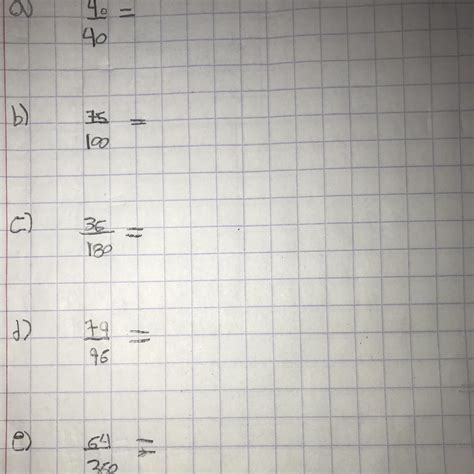 a) 40/40 =
b) 75/100 =
c) 36/180 =
d) 79/96 =
e) 64/360 =